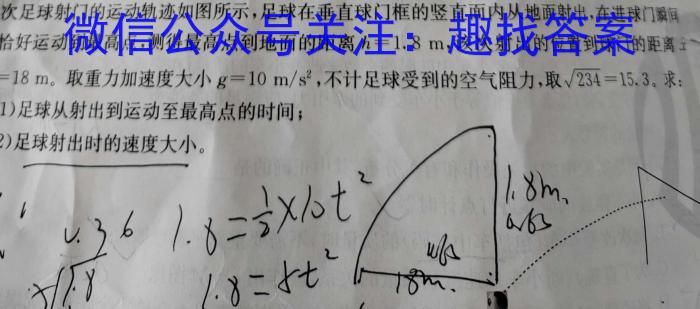 次足球射门的运动轨迹如图所示,足球在垂直球门框的竖直面内从地面射出,在进球门瞬间
微信公众号关注：趣找答案
恰好运动到最高点,测得最高点到地面的距离h=1.8 m,该次射门的位置到球门的距离
=18 m。取重力加速度大小g=10 m/s²,不计足球受到的空气阻力,取√234=15.3。求:
1)足球从射出到运动至最高点的时间;
2)足球射出时的速度大小。
1.8=½×10t²
1.8m
0.36
1.8=5t²
18m.